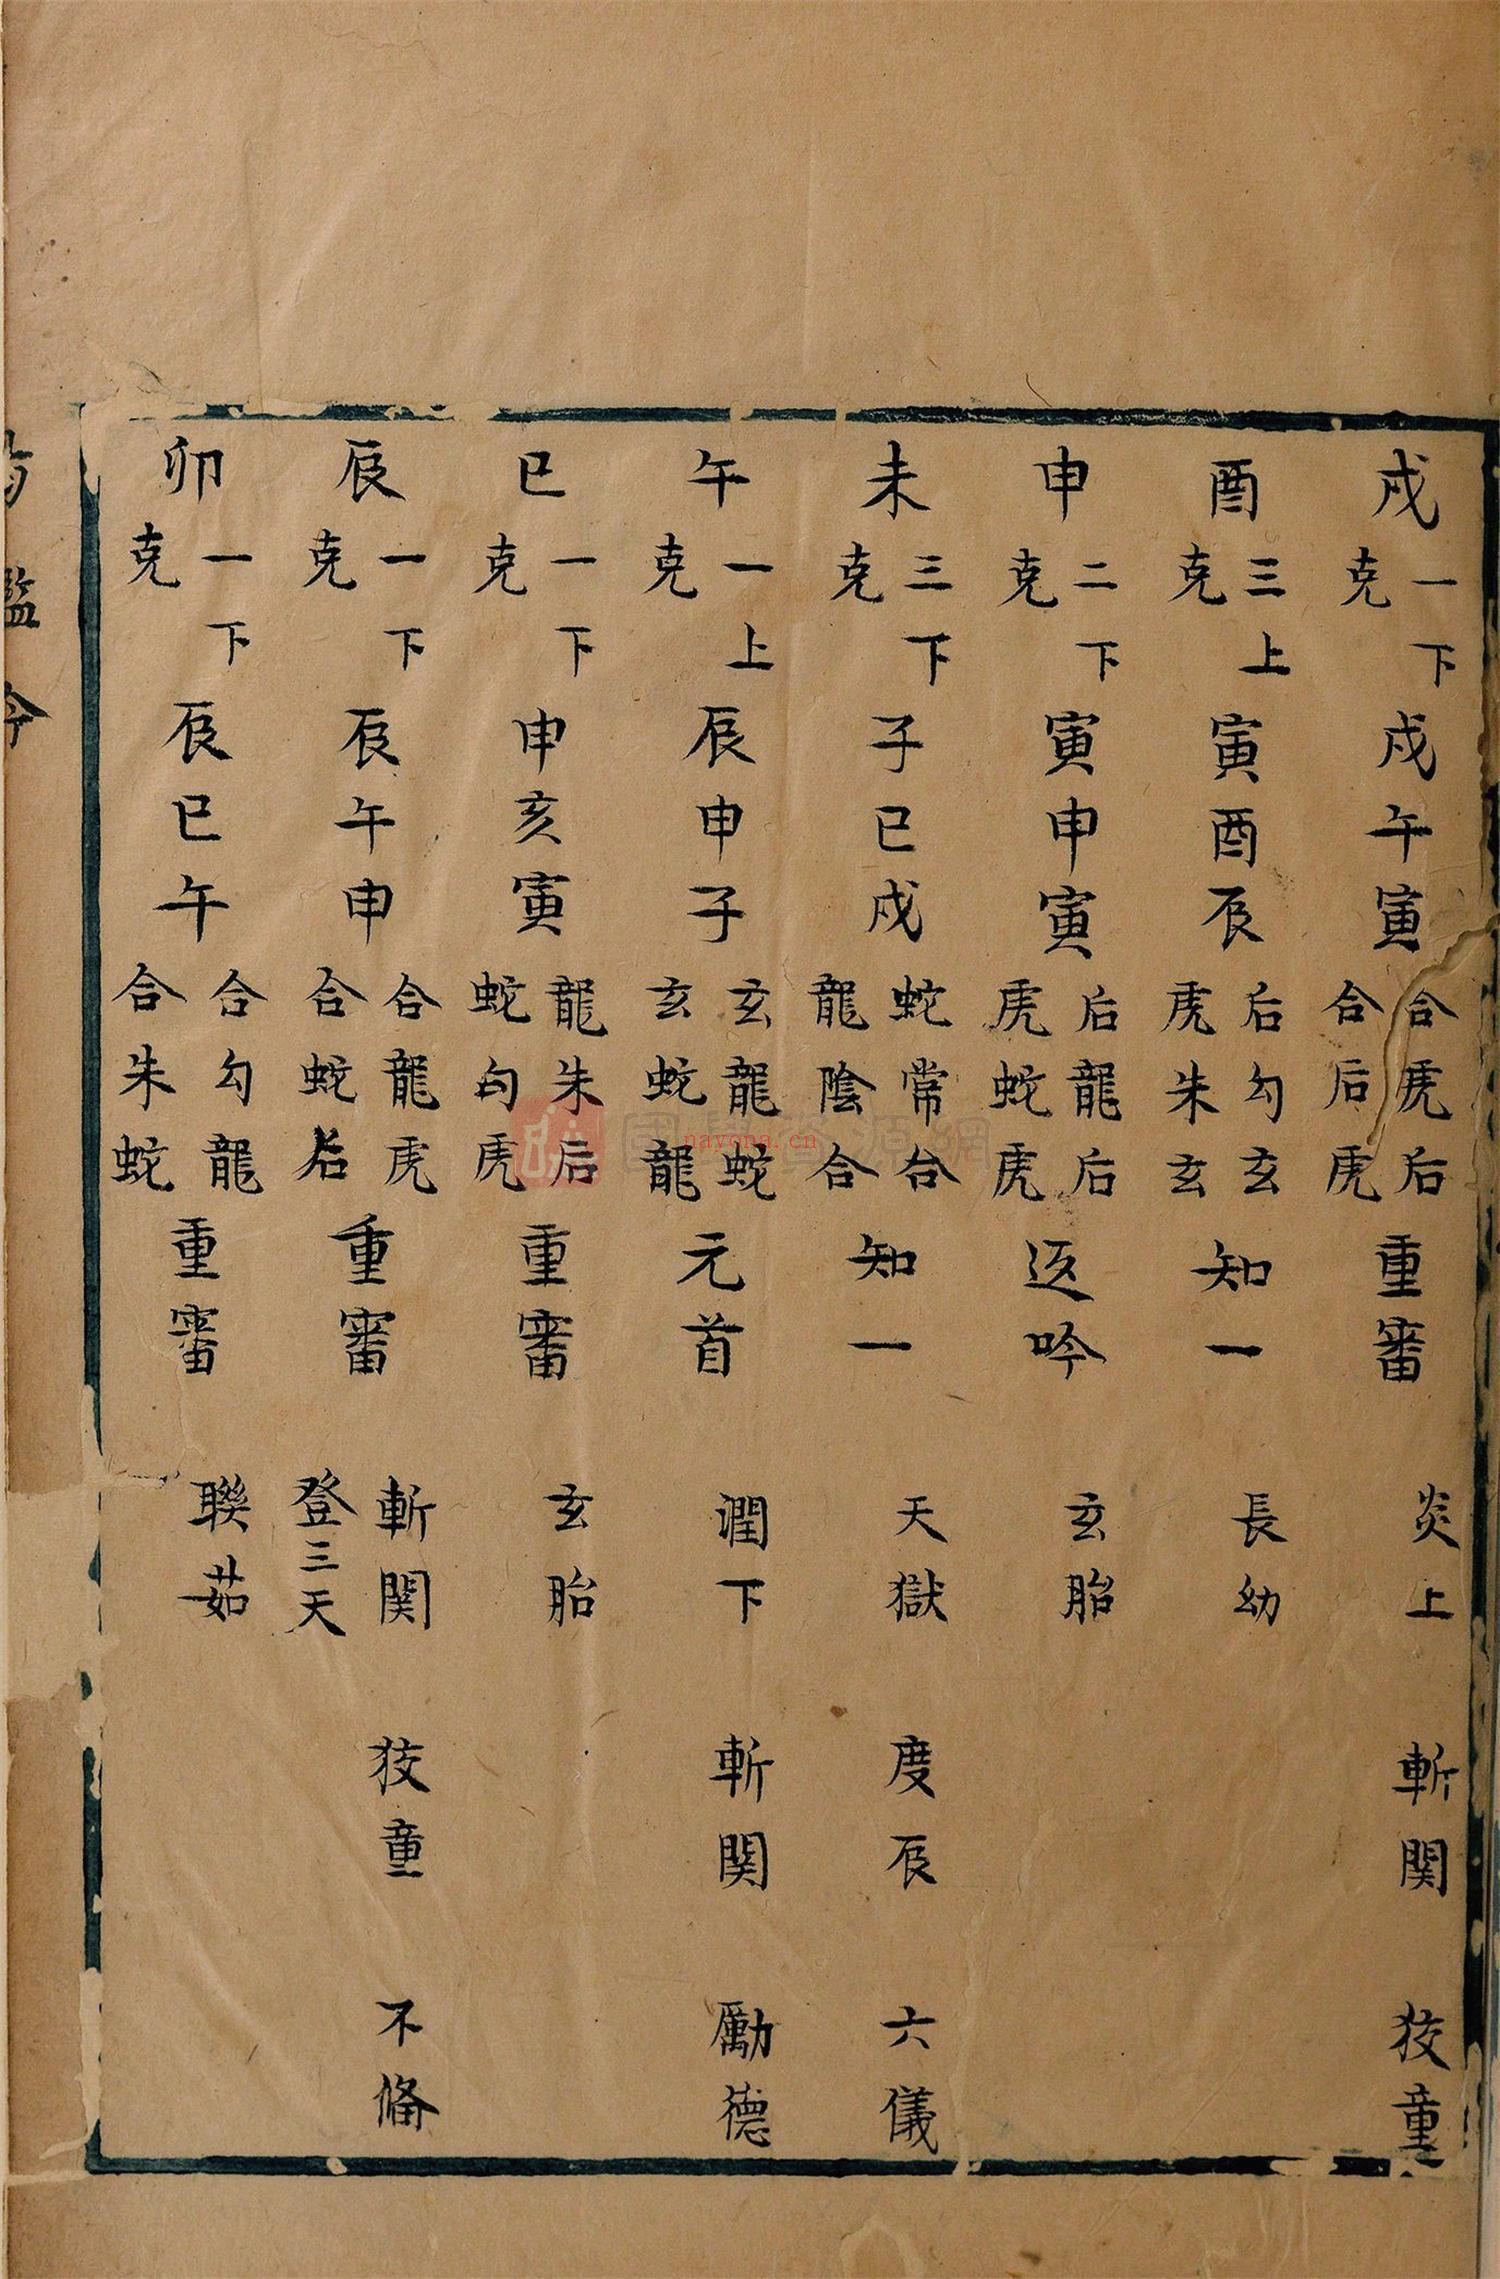 戌 一下克 戌午寅 合虎后 合后虎 重審 炎上 斬関 狡童
酉 三上克 寅酉辰 后勾玄 虎朱玄 知一 長幼
申 二下克 寅申寅 后龍后 虎蛇虎 返吟 玄胎
未 三下克 子巳戌 蛇常合 龍陰合 知一 天獄 度辰 六儀
午 一上克 辰申子 玄龍蛇 玄蛇龍 元首 潤下 斬関 勵德
巳 一下克 申亥寅 龍朱后 蛇勾虎 重審 玄胎
辰 一下克 辰午申 合龍虎 合蛇后 重審 斬関 登三天 狡童 不俻
卯 一下克 辰巳午 合勾龍 合朱蛇 重審 聯茹
nayona.cn